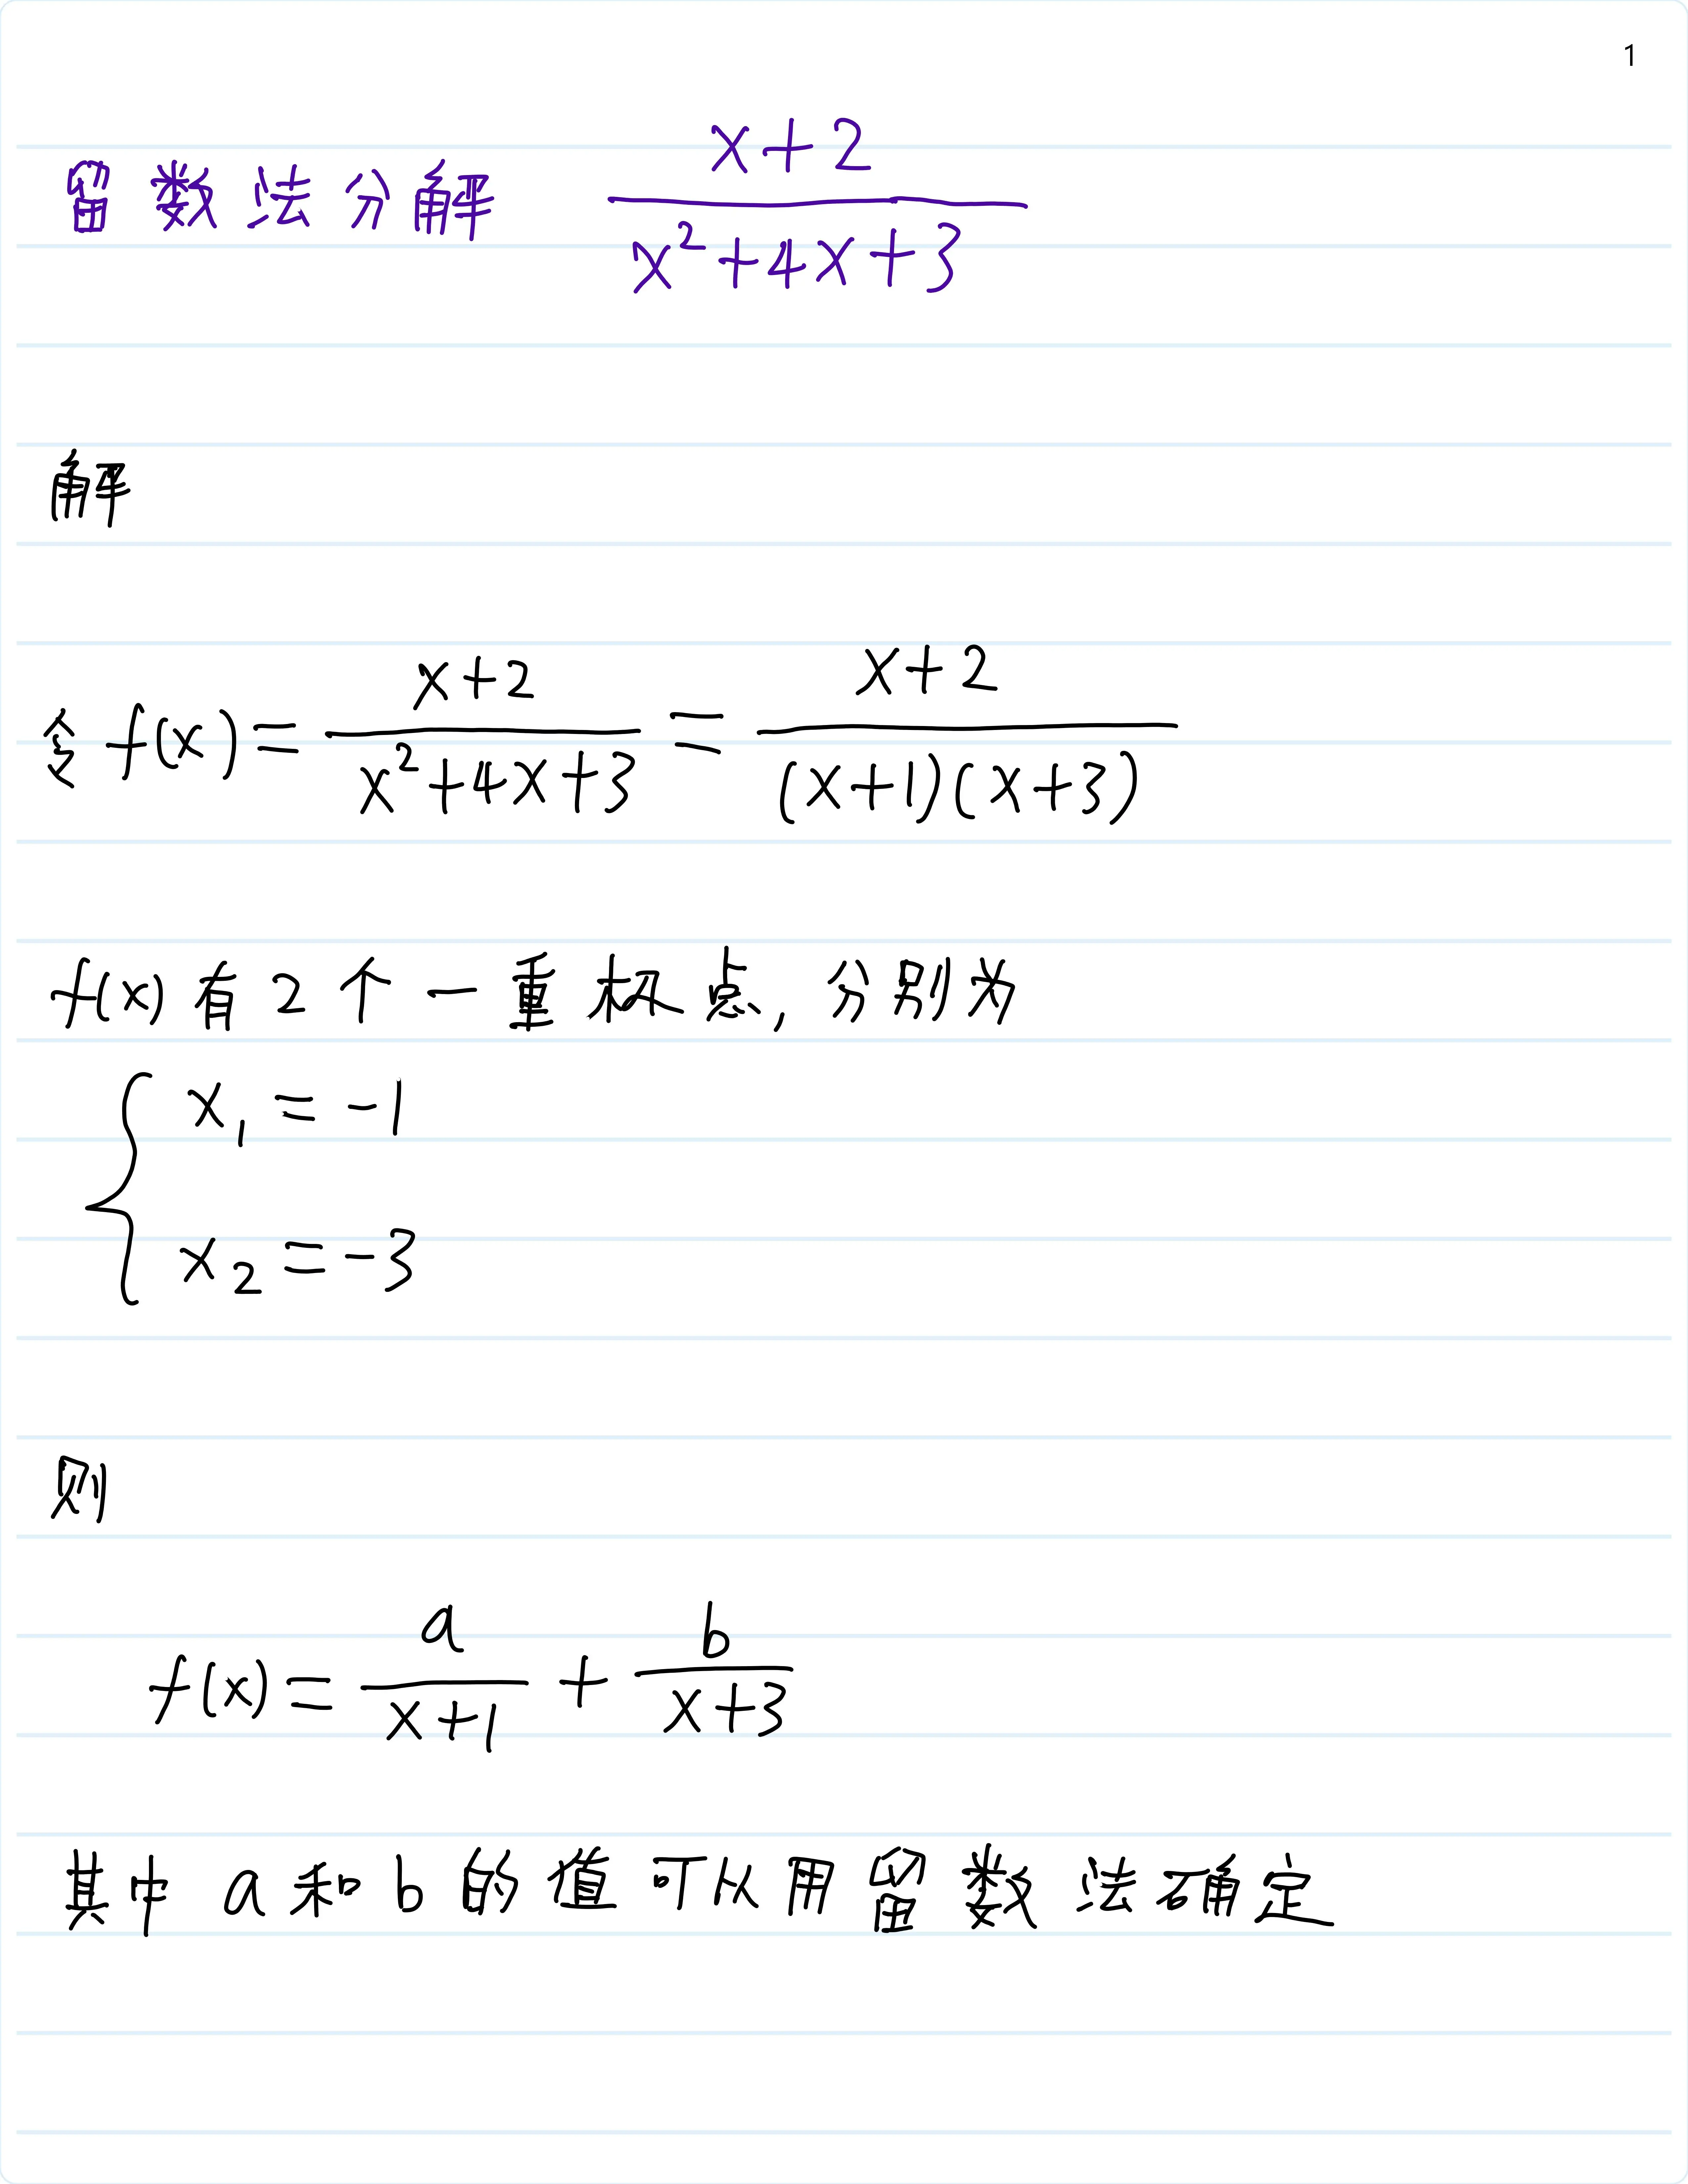 1
留数法分解 \frac{x+2}{x^2+4x+3}
解
令 f(x) = \frac{x+2}{x^2+4x+3} = \frac{x+2}{(x+1)(x+3)}
f(x) 有 2 个一重极点, 分别为
{ x_1 = -1
x_2 = -3
则
f(x) = \frac{a}{x+1} + \frac{b}{x+3}
其中 a 和 b 的值可以用留数法确定